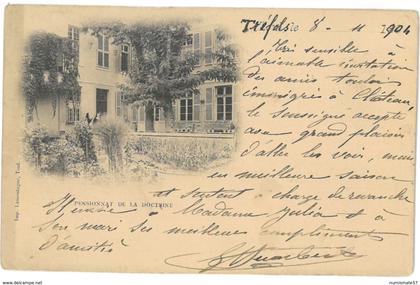 8 - 11 1904
Très sensible à
l'aimable invitation
des amis
émigrés à Château,
le soussigné accepte
avec grand plaisir
d'aller les voir, mais
en meilleure saison
et surtout à charge de revanche
Madame Julia et à
son mari ses meilleurs compliments
d'amitié
PENSIONNAT DE LA DOCTRINE
Toul.
www.numismatix57.com